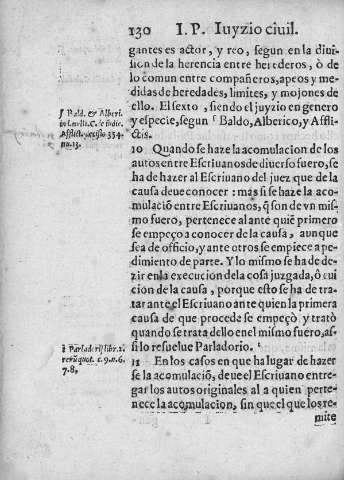 130 I. P. Iuyzio ciuil.
gantes es actor, y reo, segun en la diui
sion de la herencia entre herederos, ò de
lo comun entre compañeros, apeos y me
didas de heredades, limites, y mojones de
ello. El sexto, siendo el juyzio en genero
y especie, segun ſ Baldo, Alberico, y Affli
ctis.
ſ Bald. & Alberi.
Afflict. decisio 354.
nu. 13.
10 Quando se haze la acomulacion de los
autos entre Escriuanos de diuerso fuero, se
ha de hazer al Escriuano del juez que de la
causa deue conocer : mas si se haze la aco-
mulació entre Escriuanos, q̃ son de vn mis
mo fuero, pertenece al ante quié primero
se empeçò a conocer de la causa, aunque
sea de officio, y ante otros se empiece a pe-
dimiento de parte. Y lo mismo se ha de de-
zir en la execucion de la cosa juzgada, ô eui
cion de la causa, porque esto se ha de tra-
tar ante el Escriuano ante quien la primera
causa de que procede se empeçò, y tratò
quando se trata dello en el mismo fuero, as-
si lo resuelue Parladorio. t
t Parladori9 libr. 2.
rerũ quot. c. 9. n. 6.
7. 8.
11 En los casos en que ha lugar de hazer
se la acomulació, deue el Escriuano entre-
gar los autos originales al a quien perte-
nece la acomulacion, sin que el que los re-
mite